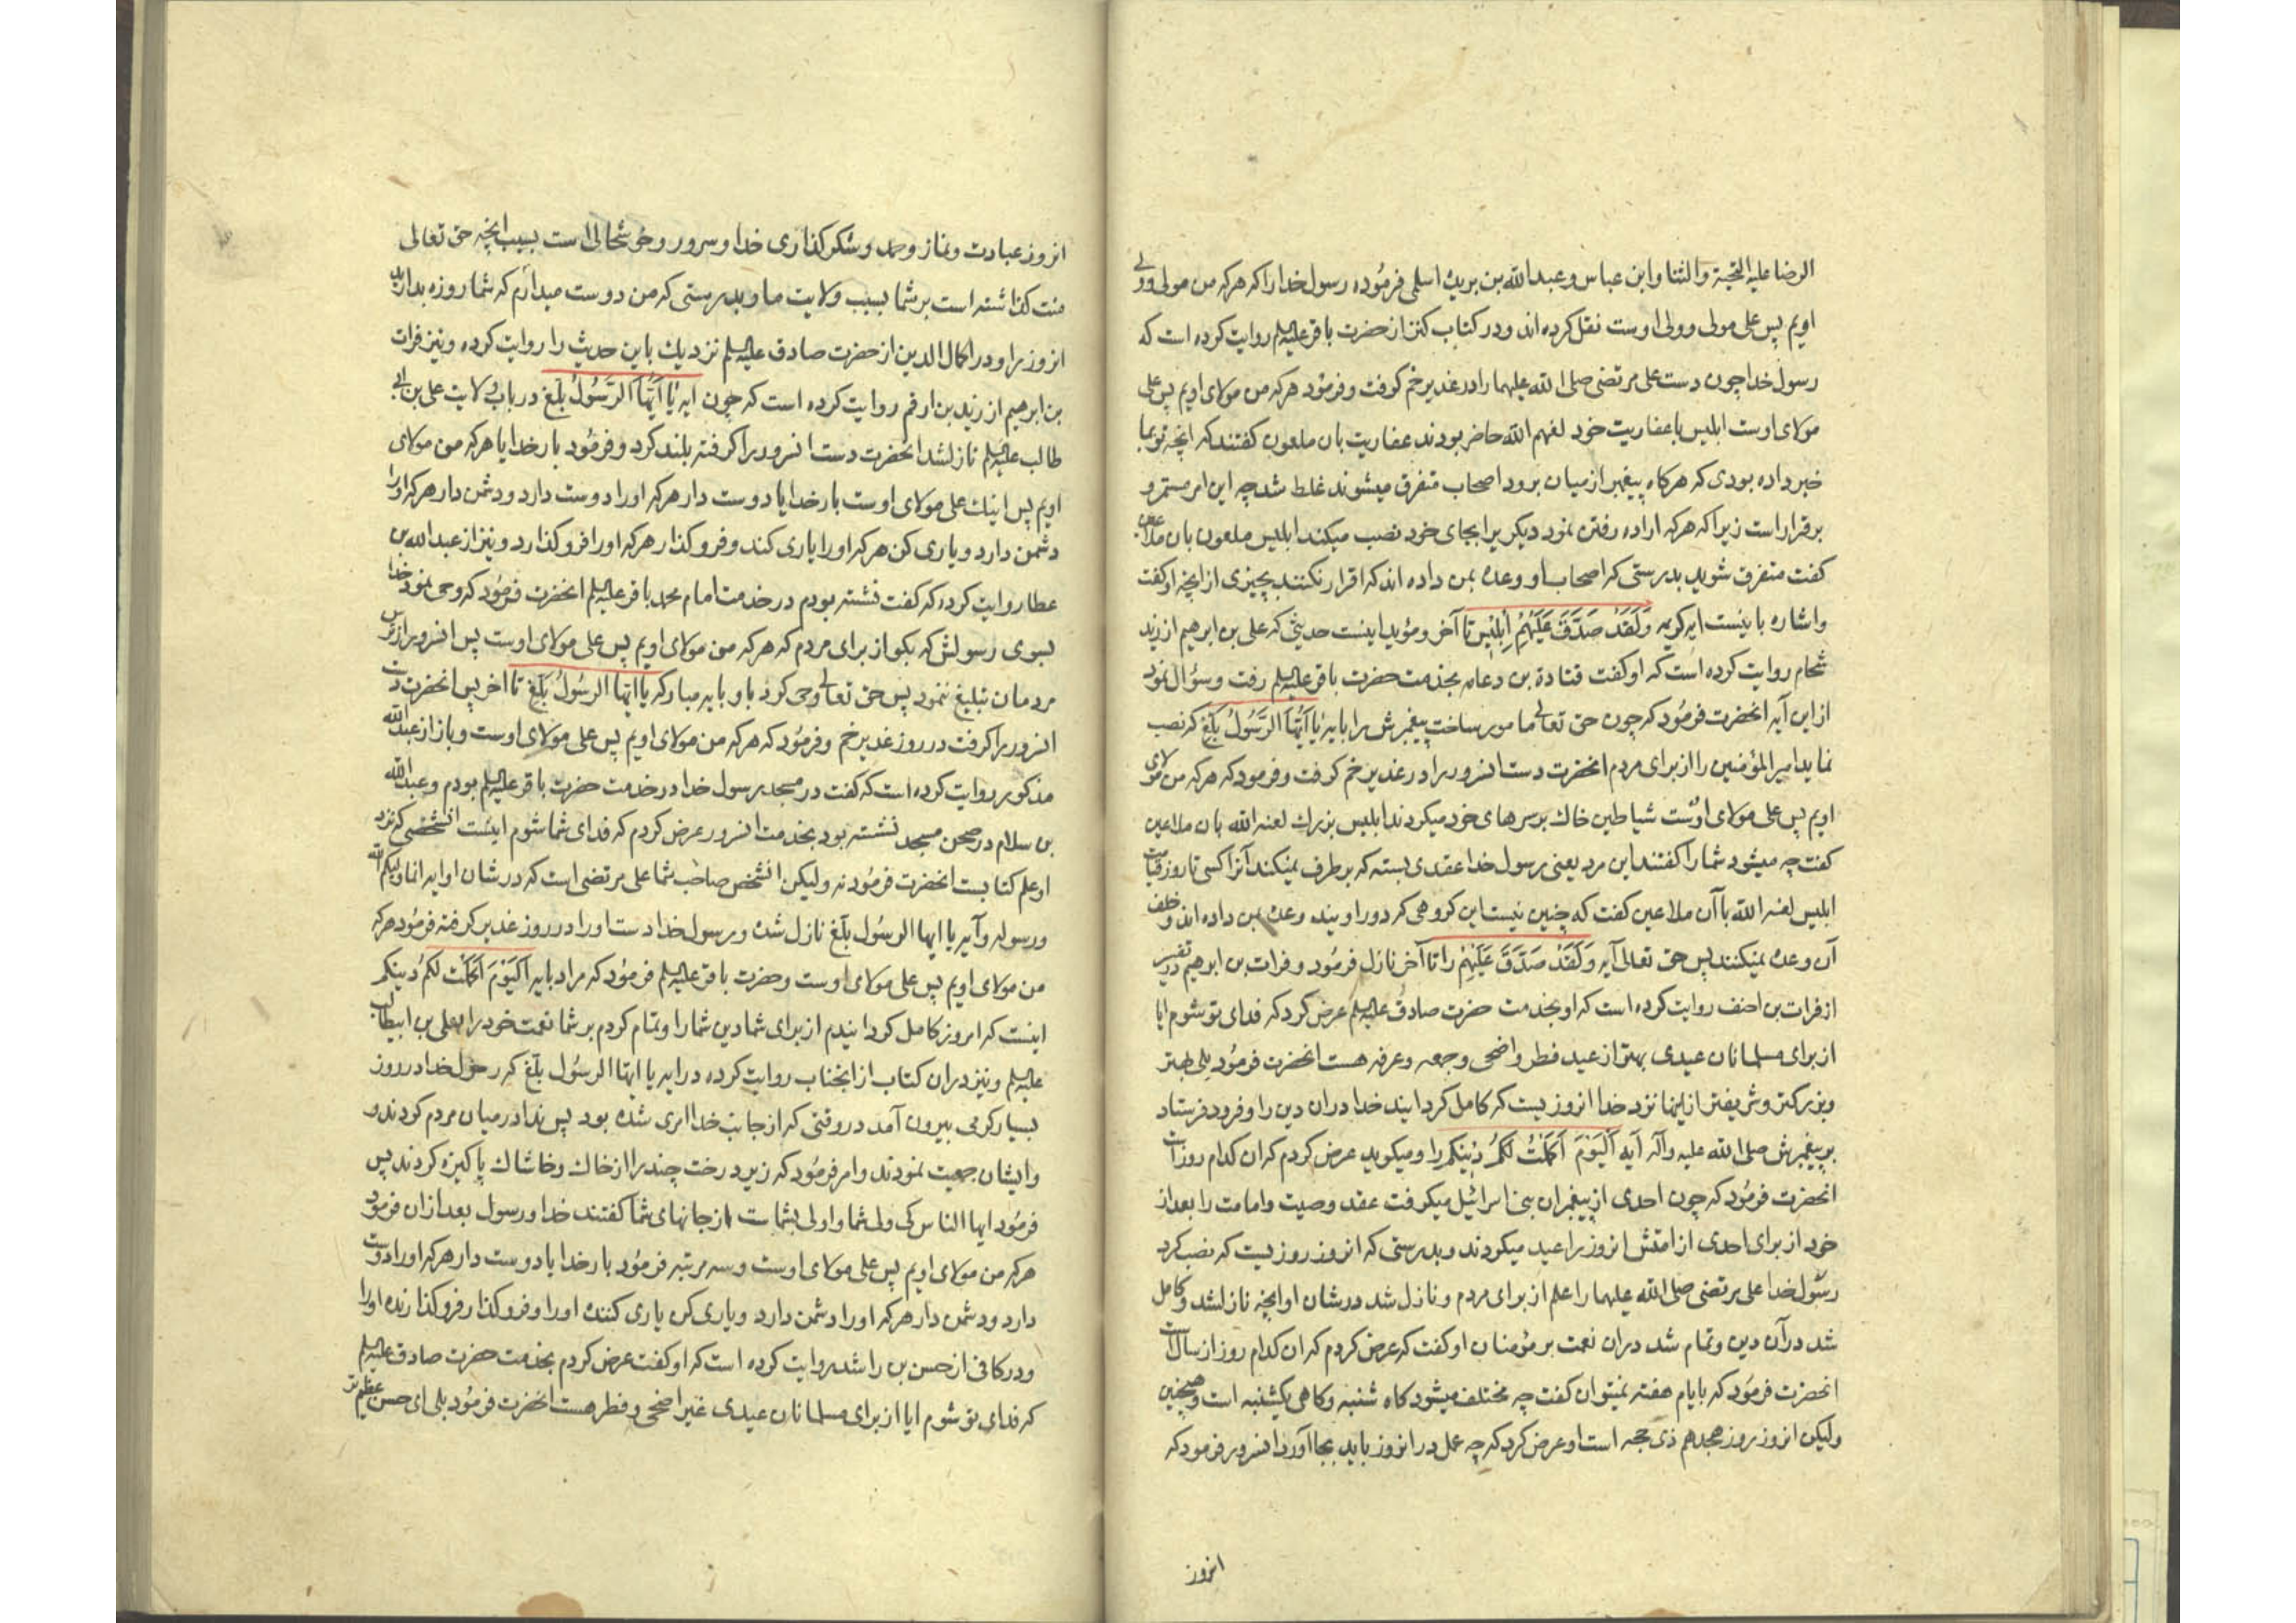 الرضا علیه التحیة والثنا وابن عباس وعبد الله بن بریده اسلمی فرموده رسول خدا را که هرکه من مولی و ولی
اویم پس علی مولی و ولی اوست نقل کرده اند و در کتاب کنز از حضرت باقر علیه السلم روایت کرده است که
رسول خدا چون دست علی مرتضی صلی الله علیهما را در غدیر خم کرفت و فرمود هرکه من مولای اویم پس علی
مولای اوست ابلیس با عفاریت خود لعنهم الله حاضر بودند عفاریت بان ملعون کفتند که انچه تو بما
خبر داده بودی که هرکاه پیغمبر از میان برود اصحاب متفرق میشوند غلط شد چه این امر مستمر و
برقرار است زیرا که هرکه اراده رفتن نمود دیکریرا بجای خود نصب میکند ابلیس ملعون بان ملاعین
کفت متفرق شوید بدرستی که اصحاب او وعده بمن داده اند که اقرار نکنند بچیزی از انچه او کفت
و اشاره باینست ایه کریمه وَلَقَدْ صَدَّقَ عَلَیْهِمْ اِبْلِیْسُ تا آخر و مؤید اینست حدیثی که علی بن ابرهیم از زید
شحام روایت کرده است که او کفت قتادة بن دعامه بخدمت حضرت باقر علیه السلم رفت و سؤال نمود
از این آیه انحضرت فرمود که چون حق تعالی مامور ساخت پیغمبرش را بایه یٰا اَیُّهَا الرَّسُولُ بَلِّغ که نصب
نماید امیر المؤمنین را از برای مردم انحضرت دست انسرور را در غدیر خم کرفت و فرمود که هرکه من مولای
اویم پس علی مولای اوست شیاطین خاک بر سرهای خود میکردند ابلیس بزرک لعنه الله بان ملاعین
کفت چه میشود شما را کفتند این مرد یعنی رسول خدا عقدی بسته که بر طرف نمیکند آنرا کسی تا روز قیامت
ابلیس لعنه الله باآن ملاعین کفت که چنین نیست این کروهی که در دور اویند وعده بمن داده اند و خلف
آن وعده نمیکنند پس حق تعالی آیه وَلَقَدْ صَدَّقَ عَلَیْهِمْ را تا آخر نازل فرمود و فرات بن ابرهیم در تفسیر
از فرات بن احنف روایت کرده است که او بخدمت حضرت صادق علیه السلم عرض کرد که فدای تو شوم ایا
از برای مسلمانان عیدی بهتر از عید فطر و اضحی و جمعه و عرفه هست انحضرت فرمود بلی بهتر
و بزرکتر و شریفتر از اینها نزد خدا انروزیست که کامل کردانید خدا دران دین را و فرود فرستاد
بر پیغمبرش صلی الله علیه وآله آیه اَلْیَوْمَ اَکْمَلْتُ لَکُمْ دیْنَکُمْ را و میکوید عرض کردم که ان کدام روز است
انحضرت فرمود که چون احدی از پیغمبران بنی اسرائیل میکرفت عقد وصیت و امامت را بعد از
خود از برای احدی از امتش انروز را عید میکردند و بدرستی که انروز روزیست که نصب کرد
رسول خدا علی مرتضی صلی الله علیهما را علم از برای مردم و نازل شد در شان او انچه نازلشد و کامل
شد در آن دین و تمام شد دران نعمت بر مؤمنان او کفت که عرض کردم که ان کدام روز از سال است
انحضرت فرمود که بایام هفته نمیتوان کفت چه مختلف میشود کاه شنبه و کاهی یکشنبه است و همچنین
ولیکن انروز روز هجدهم ذی حجه است او عرض کرد که چه عمل در انروز باید بجا آورد انسرور فرمود که
انروز
انروز عبادت و نماز و حمد و شکر کذاری خدا و سرور و خوشحالی است بسبب انچه حق تعالی
منت کذاشته است بر شما بسبب ولایت ما و بدرستی که من دوست میدارم که شما روزه بدارید
انروز را و در اکمال الدین از حضرت صادق علیه السلم نزدیک باین حدیث را روایت کرده و نیز فرات
بن ابرهیم از زید بن ارقم روایت کرده است که چون ایه یٰا اَیُّهَا الرَّسُولُ بَلِّغ در باب ولایت علی بن ابی
طالب علیه السلم نازلشد انحضرت دست انسرور را کرفته بلند کرد و فرمود بار خدایا هرکه من مولای
اویم پس اینک علی مولای اوست بار خدایا دوست دار هرکه او را دوست دارد و دشمن دار هرکه او را
دشمن دارد و یاری کن هرکه او را یاری کند و فرو کذار هرکه او را فرو کذارد و نیز از عبد الله بن
عطا روایت کرده که کفت نشسته بودم در خدمت امام محمد باقر علیه السلم انحضرت فرمود که وحی نمود خدا
بسوی رسولش که بکو از برای مردم که هرکه من مولای اویم پس علی مولای اوست پس انسرور از ترس
مردمان تبلیغ ننمود پس حق تعالی وحی کرد باو بایه مبارکه یا ایها الرسُولُ بَلِّغ تا اخر پس انحضرت دست
انسرور را کرفت در روز غدیر خم و فرمود که هرکه من مولای اویم پس علی مولای اوست و باز از عبد الله
مذکور روایت کرده است که کفت در مسجد رسول خدا در خدمت حضرت باقر علیه السلم بودم و عبد الله
بن سلام در صحن مسجد نشسته بود بخدمت انسرور عرض کردم که فدای شما شوم اینست انشخصی که نزد
او علم کتابست انحضرت فرمود نه ولیکن انشخص صاحب شما علی مرتضی است که در شان او ایه انما ولیکم الله
ورسوله و آیه یا ایها الرسُول بلِّغ نازل شده و رسول خدا دست او را در روز غدیر کرفته فرمود هرکه
من مولای اویم پس علی مولای اوست و حضرت باقر علیه السلم فرمود که مراد بایه اَلْیَوْمَ اَکْمَلْت لَکُمْ دینکم
اینست که امروز کامل کردانیدم از برای شما دین شما را و تمام کردم بر شما نعمت خود را بعلی بن ابیطالب
علیه السلم و نیز دران کتاب از انجناب روایت کرده در ایه یا ایها الرسُول بلِّغ که رسول خدا در روز
بسیار کرمی بیرون آمد در وقتی که از جانب خدا امری شده بود پس ندا در میان مردم کردند و
وایشان جمعیت نمودند و امر فرمود که زیر درخت چند را از خاک و خاشاک پاکیزه کردند پس
فرمود ایها الناس کی ولی شما و اولی بشماست از جانهای شما کفتند خدا و رسول بعد ازان فرمود
هرکه من مولای اویم پس علی مولای اوست و سه مرتبه فرمود بار خدایا دوست دار هرکه او را دوست
دارد و دشمن دار هرکه او را دشمن دارد و یاری کن یاری کننده او را و فرو کذار فرو کذارنده او را
و در کافی از حسن بن راشد روایت کرده است که او کفت عرض کردم بخدمت حضرت صادق علیه السلم
که فدای تو شوم ایا از برای مسلمانان عیدی غیر اضحی و فطر هست انحضرت فرمود بلی ای حسن عظیم تر